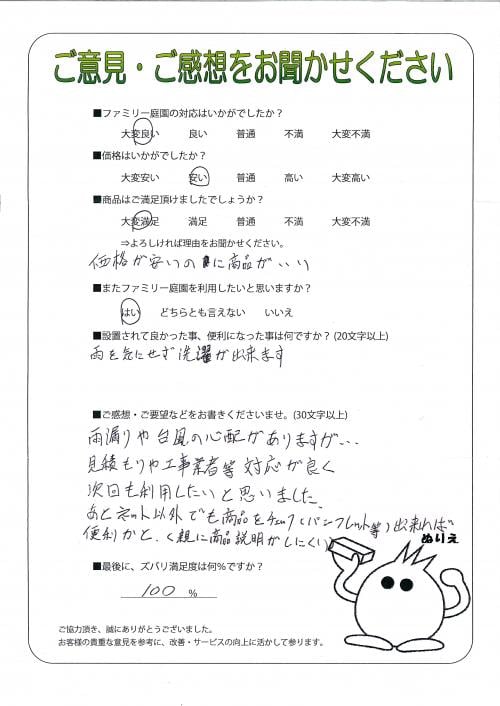 ご意見・ご感想をお聞かせください
■ファミリー庭園の対応はいかがでしたか？
大変良い 良い 普通 不満 大変不満
■価格はいかがでしたか？
大変安い 安い 普通 高い 大変高い
■商品はご満足頂けましたでしょうか？
大変満足 満足 普通 不満 大変不満
⇒よろしければ理由をお聞かせください。
価格が安いのに商品がいい
■またファミリー庭園を利用したいと思いますか？
はい どちらとも言えない いいえ
■設置されて良かった事、便利になった事は何ですか？(20文字以上)
雨を気にせず洗濯が出来ます
■ご感想・ご要望などをお書きくださいませ。(30文字以上)
雨漏りや台風の心配がありますが…
見積もりや工事業者等対応が良く
次回も利用したいと思いました。
あとネット以外でも商品をチェック(パンフレット等)出来れば
便利かと、(親に商品説明がしにくい)
ぬりえ
■最後に、ズバリ満足度は何%ですか？
100 %
ご協力頂き、誠にありがとうございました。
お客様の貴重な意見を参考に、改善・サービスの向上に活かして参ります。